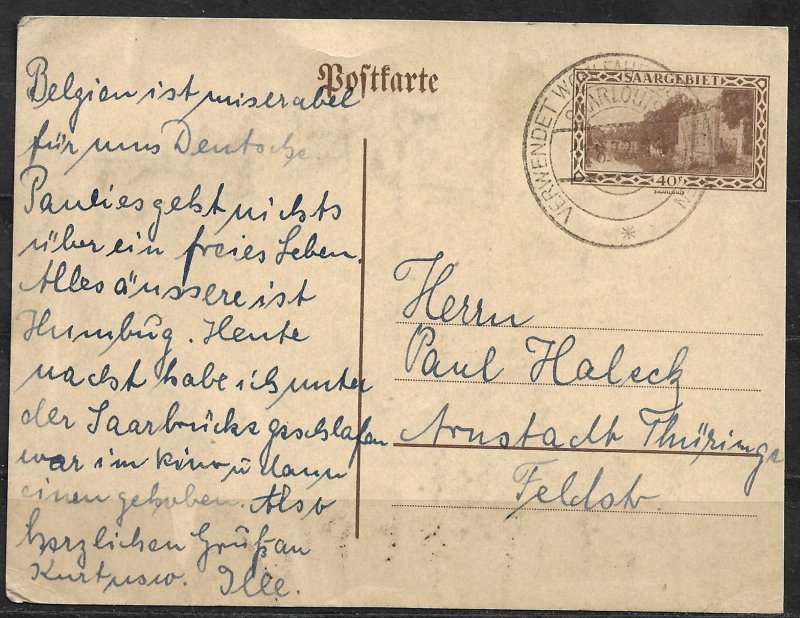 Postkarte
SAARGEBIET
40 F.
SAARLOUIS
VERWENDET
SAARLOUIS
Belgien ist miserabel
für uns Deutsche.
Paul es geht nichts
über ein freies Leben.
Alles äussere ist
Humbug. Heute
nacht habe ich unter
der Saarbrücke geschlafen
war im Kino u dann
einen gehoben. Also
herzlichen Gruß an
Kurt usw. Ille.
Herrn
Paul Haleck
Arnstadt Thüringe
Feldstr.